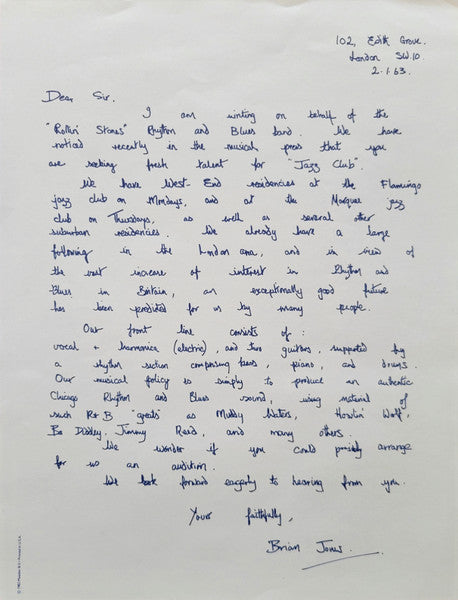 102, Edith Grove.
London SW.10
2.1.63.
Dear Sir.
I am writing on behalf of the
"Rollin' Stones" Rhythm and Blues band. We have
noticed recently in the musical press that you
are seeking fresh talent for "Jazz Club".
We have West-End residencies at the Flamingo
jazz club on Mondays, and at the Marquee jazz
club on Thursdays, as well as several other
suburban residencies. We already have a large
following in the London area, and in view of
the vast increase of interest in Rhythm and
Blues in Britain, an exceptionally good future
has been predicted for us by many people.
Our front line consists of :
vocal + harmonica (electric), and two guitars, supported by
a rhythm section comprising bass, piano, and drums.
Our musical policy is simply to produce an authentic
Chicago Rhythm and Blues sound, using material of
such R+B "greats" as Muddy Waters, Howlin' Wolf,
Bo Diddley, Jimmy Reed, and many others.
We wonder if you could possibly arrange
for us an audition.
We look forward eagerly to hearing from you.
Yours faithfully,
Brian Jones.